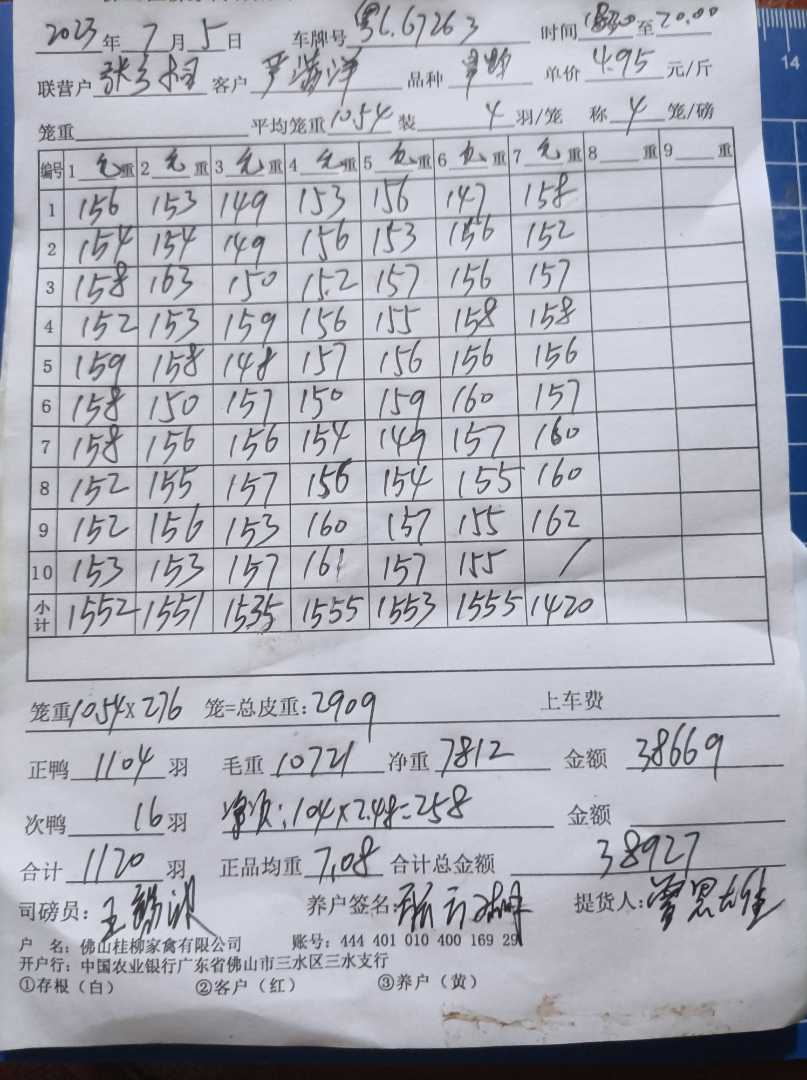 2023年7月5日 车牌号 粤L.67263 时间 至20.00
联营户 客户 严 洋 品种 单价 4.95 元/斤
笼重 平均笼重 1054 装 4 羽/笼 称 4 笼/磅
编号 1 毛重 2 毛重 3 毛重 4 毛重 5 毛重 6 毛重 7 毛重 8 重 9 重
1 156 153 149 153 156 147 158
2 154 154 149 156 153 156 152
3 158 163 150 152 157 156 157
4 152 153 159 156 155 158 158
5 159 158 148 157 156 156 156
6 158 150 157 150 159 160 157
7 158 156 156 154 149 157 160
8 152 155 157 156 154 155 160
9 152 156 153 160 157 155 162
10 153 153 157 161 157 155 /
小计 1552 1551 1535 1555 1553 1555 1420
笼重 1054 X 276 笼=总皮重: 2909 上车费
正鸭 1104 羽 毛重 10721 净重 7812 金额 38669
次鸭 16 羽 : 104×2.48=258 金额
合计 1120 羽 正品均重 7.08 合计总金额 38927
司磅员: 王 养户签名: 提货人:
户 名: 佛山桂柳家禽有限公司 账号: 444 401 010 400 169 29
开户行: 中国农业银行广东省佛山市三水区三水支行
①存根(白) ②客户(红) ③养户(黄)